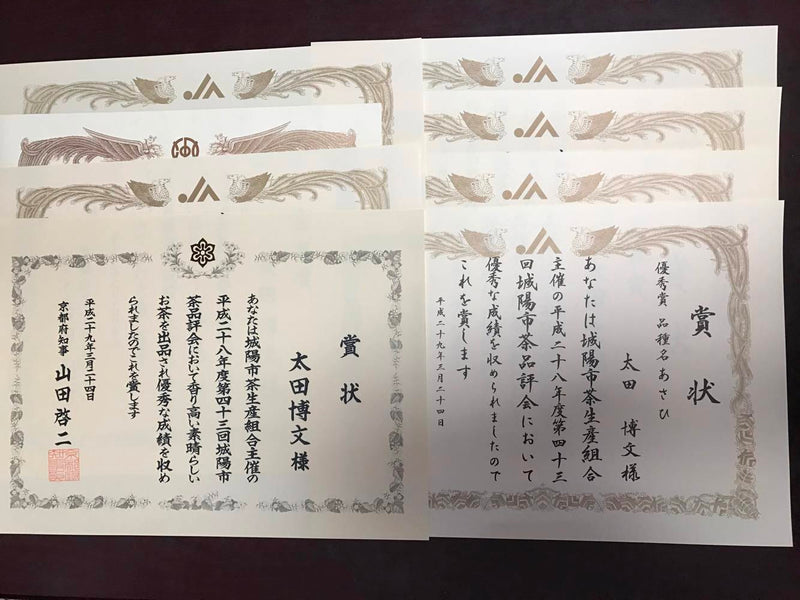 賞状
太田博文様
あなたは城陽市茶生産組合主催の
平成二十八年度第四十三回城陽市
茶品評会において香り高い素晴らしい
お茶を出品され優秀な成績を収め
られましたのでこれを賞します
平成二十九年三月二十四日
京都府知事 山田啓二
賞状
優秀賞 品種名 あさひ
太田 博文様
あなたは城陽市茶生産組合
主催の平成二十八年度第四十三
回城陽市茶品評会において
優秀な成績を収められましたので
これを賞します
平成二十九年三月二十四日